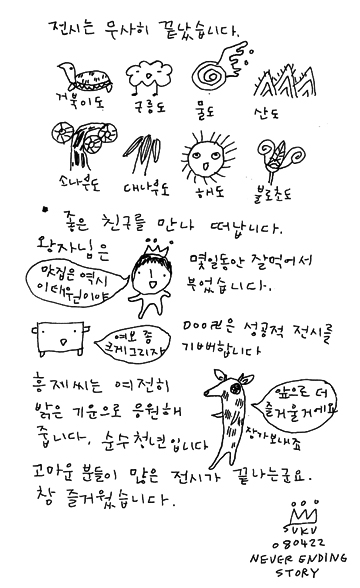 전시는 무사히 끝났습니다.
거북이도 구름도 물도 산도
소나무도 대나무도 해도 불로초도
좋은 친구를 만나 떠납니다.
왕자님은
맛집은 역시
이태원이야
몇일동안 잘먹어서
부었습니다.
여보 좀
크게그리자
DOO퀸은 성공적 전시를
기뻐합니다
흥제씨는 여전히
밝은 기운으로 응원해
줍니다. 순수청년입니다
앞으로 더
즐거울거에요
장가보내죠
고마운 분들이 많은 전시가 끝나는군요.
참 즐거웠습니다.
SUKU
080422
NEVER ENDING
STORY